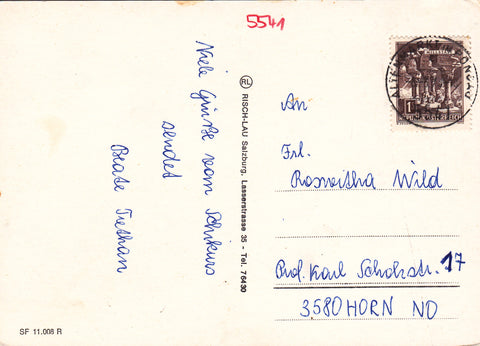 5541
Viele Grüße vom Schikurs
sendet
Beate Tiethan
RL RISCH-LAU Salzburg, Lasserstrasse 35 - Tel. 76430
SF 11.008 R
An
Frl.
Roswitha Wild
Prof. Karl Scholzstr. 17
3580 HORN NÖ
MILLSTATT